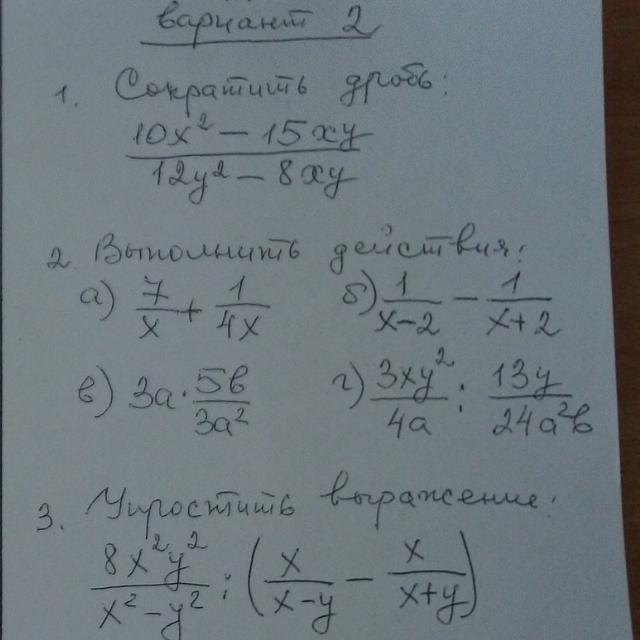 вариант 2
1. Сократить дробь:
10x² − 15xy
12y² − 8xy
2. Выполнить действия:
а) 7/x + 1/4x б) 1/x−2 − 1/x+2
в) 3a · 5b/3a² г) 3xy²/4a : 13y/24a²b
3. Упростить выражение:
8x²y²/x²−y² : (x/x−y − x/x+y)